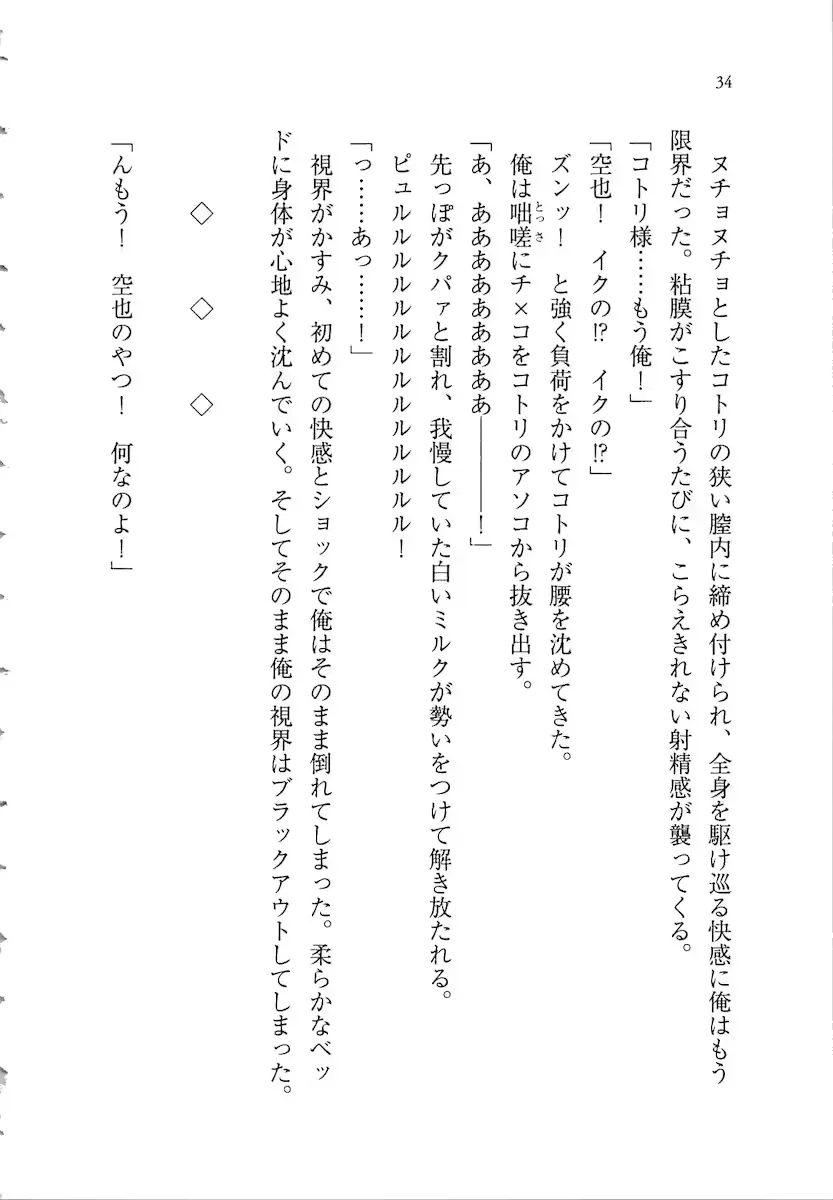 34
ヌチョヌチョとしたコトリの狭い膣内に締め付けられ、全身を駆け巡る快感に俺はもう
限界だった。粘膜がこすり合うたびに、こらえきれない射精感が襲ってくる。
「コトリ様……もう俺！」
「空也！　イクの⁉　イクの⁉」
ズンッ！　と強く負荷をかけてコトリが腰を沈めてきた。
俺は咄嗟とっさにチ×コをコトリのアソコから抜き出す。
「あ、ああああああああああ――――！」
先っぽがクパァと割れ、我慢していた白いミルクが勢いをつけて解き放たれる。
ピュルルルルルルルルルルルルルルル！
「っ……あっ……！」
視界がかすみ、初めての快感とショックで俺はそのまま倒れてしまった。柔らかなベッ
ドに身体が心地よく沈んでいく。そしてそのまま俺の視界はブラックアウトしてしまった。
◇　◇　◇
「んもう！　空也のやつ！　何なのよ！」